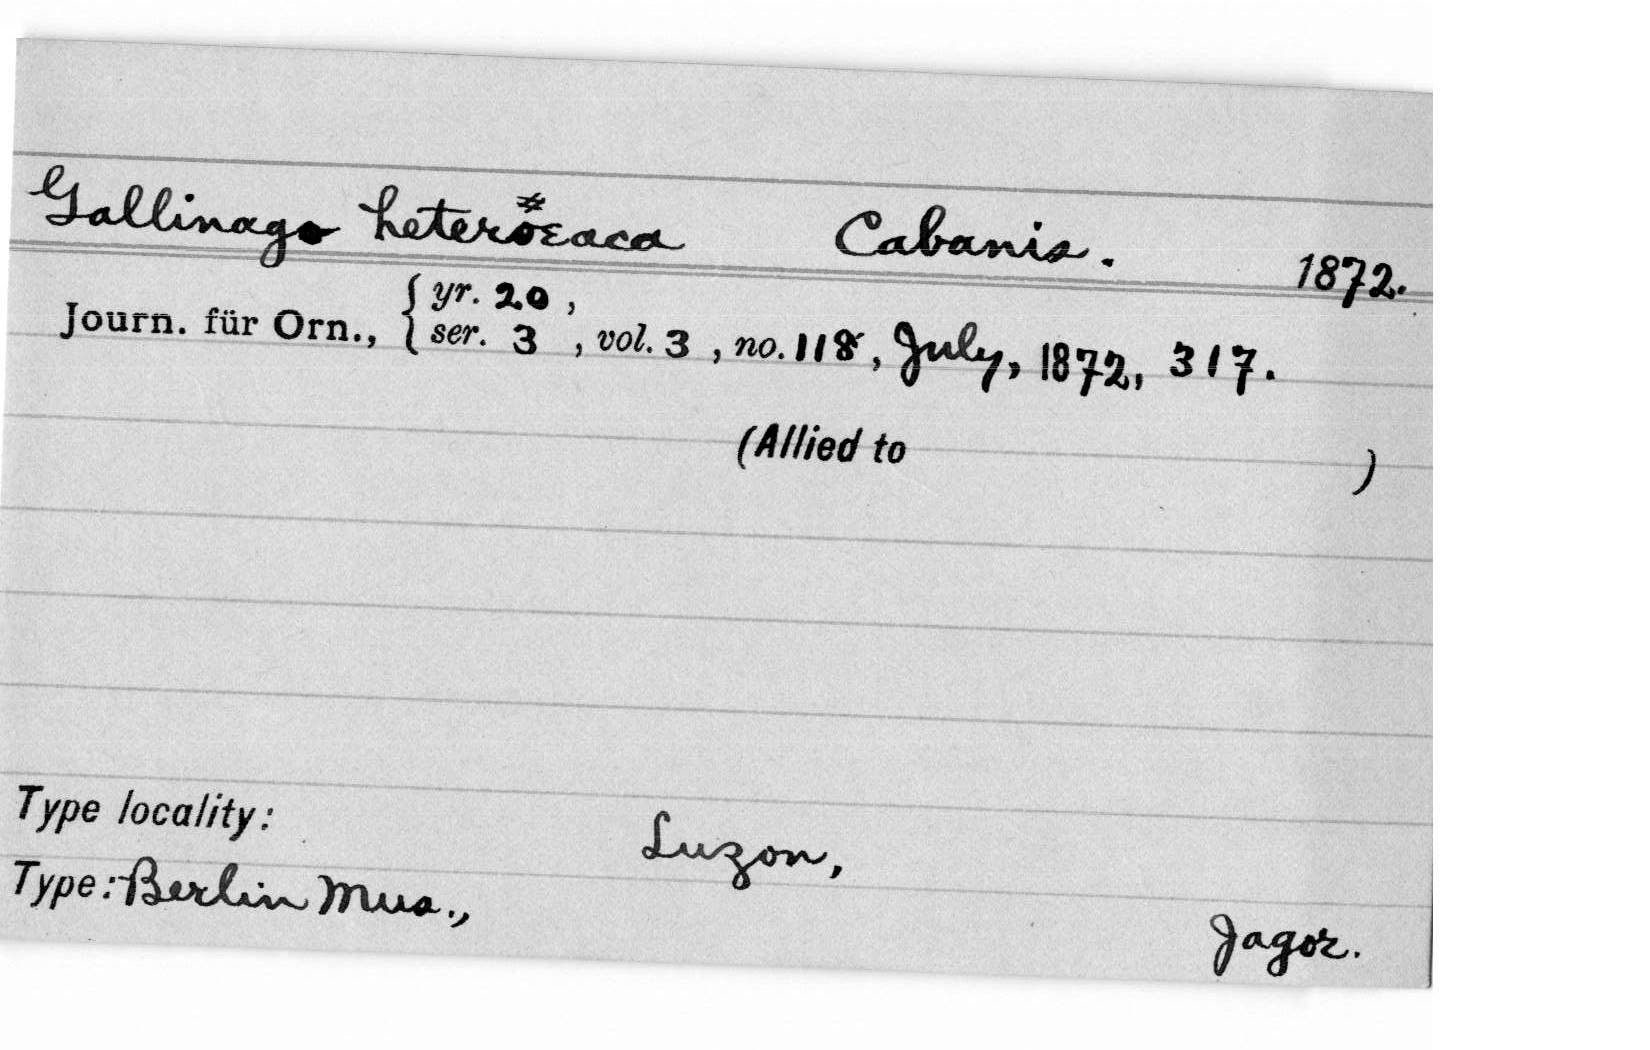 Gallinago heterocaca Cabanis. 1872.
Journ. für Orn., { yr. 20 ,
ser. 3 , vol. 3 , no. 118, July, 1872, 317.
(Allied to )
Type locality: Luzon,
Type: Berlin Mus., Jagor.